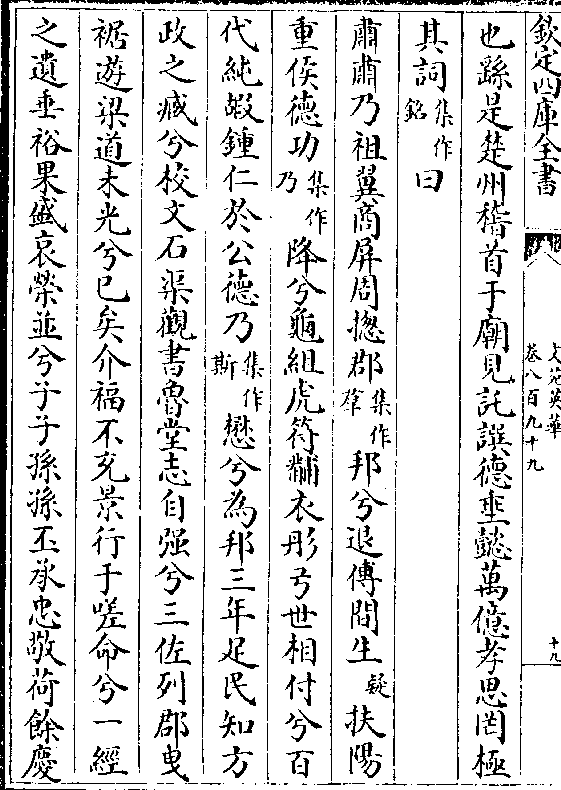 欽定四庫全書
文苑英華
卷八百九十九
十九
也繇是楚州稽首于廟見託譔德垂懿萬億孝思罔極
其詞集作銘曰
肅肅乃祖翼商屏周揔郡集作群邦兮退傅間生疑扶陽
重侯德功集作乃降兮龜組虎符黼衣彤弓世相付兮百
代純嘏鍾仁於公德乃集作斯懋兮為邦三年足民知方
政之臧兮校文石渠觀書魯堂志自强兮三佐列郡曳
裾遊梁道未光兮已矣介福不充景行于嗟命兮一經
之遺垂裕果盛哀榮並兮子子孫孫丕承忠敬荷餘慶